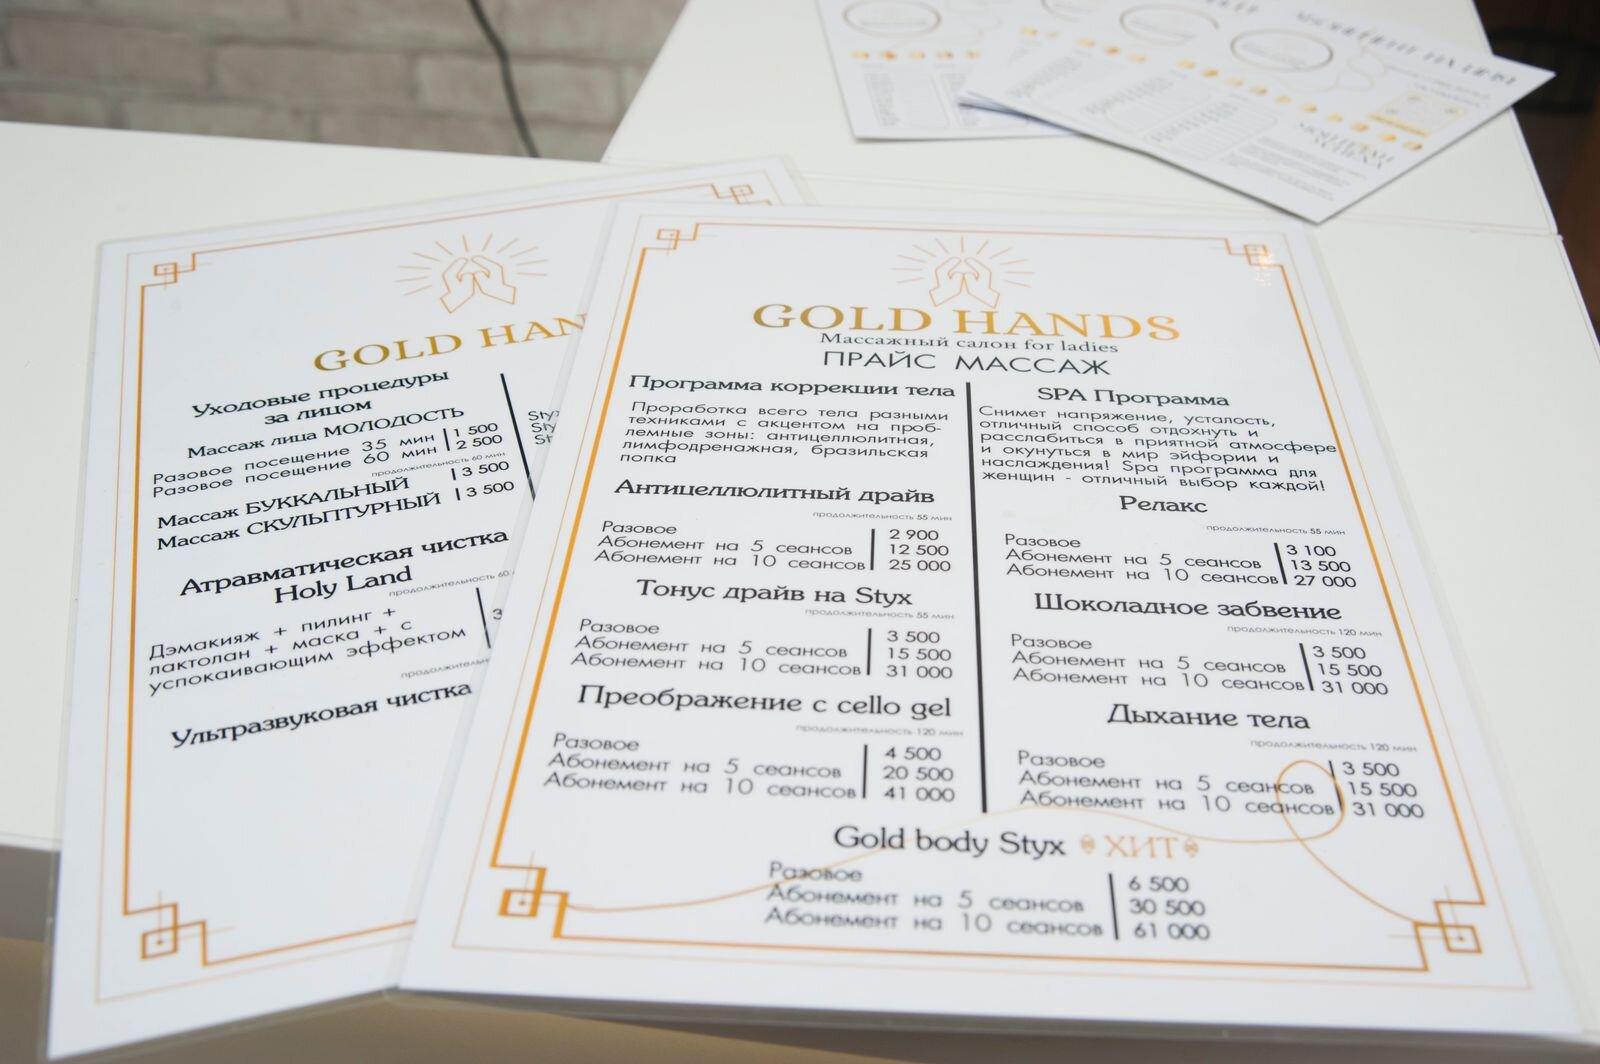 GOLD HAN
Уходовые процедуры
за лицом
Массаж лица МОЛОДОСТЬ
Разовое посещение 35 мин 1 500
Разовое посещение 60 мин 2 500
продолжительность 60 мин
Массаж БУККАЛЬНЫЙ 3 500
Массаж СКУЛЬПТУРНЫЙ 3 500
Атравматическая чистка
Holy Land
продолжительность 60
Дэмакияж + пилинг +
лактолан + маска + с
успокаивающим эффектом
3
Ультразвуковая чистка
Sty
Sty
St
GOLD HANDS
Массажный салон for ladies
ПРАЙС МАССАЖ
Программа коррекции тела
Проработка всего тела разными
техниками с акцентом на проб-
лемные зоны: антицеллюлитная,
лимфодренажная, бразильская
попка
Антицеллюлитный драйв
продолжительность 55 мин
Разовое 2 900
Абонемент на 5 сеансов 12 500
Абонемент на 10 сеансов 25 000
Тонус драйв на Styx
продолжительность 55 мин
Разовое 3 500
Абонемент на 5 сеансов 15 500
Абонемент на 10 сеансов 31 000
Преображение с cello gel
продолжительность 120 мин
Разовое 4 500
Абонемент на 5 сеансов 20 500
Абонемент на 10 сеансов 41 000
SPA Программа
Снимет напряжение, усталость,
отличный способ отдохнуть и
расслабиться в приятной атмосфере
и окунуться в мир эйфории и
наслаждения! Spa программа для
женщин - отличный выбор каждой!
Релакс
продолжительность 55 мин
Разовое 3 100
Абонемент на 5 сеансов 13 500
Абонемент на 10 сеансов 27 000
Шоколадное забвение
продолжительность 120 мин
Разовое 3 500
Абонемент на 5 сеансов 15 500
Абонемент на 10 сеансов 31 000
Дыхание тела
продолжительность 120 мин
Разовое 3 500
Абонемент на 5 сеансов 15 500
Абонемент на 10 сеансов 31 000
Gold body Styx ХИТ
Разовое 6 500
Абонемент на 5 сеансов 30 500
Абонемент на 10 сеансов 61 000